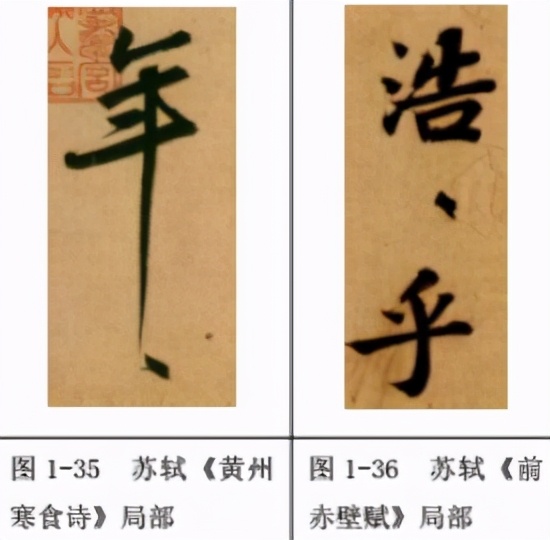 年、
浩、乎
图 1-35 苏轼《黄州
寒食诗》局部
图 1-36 苏轼《前
赤壁赋》局部